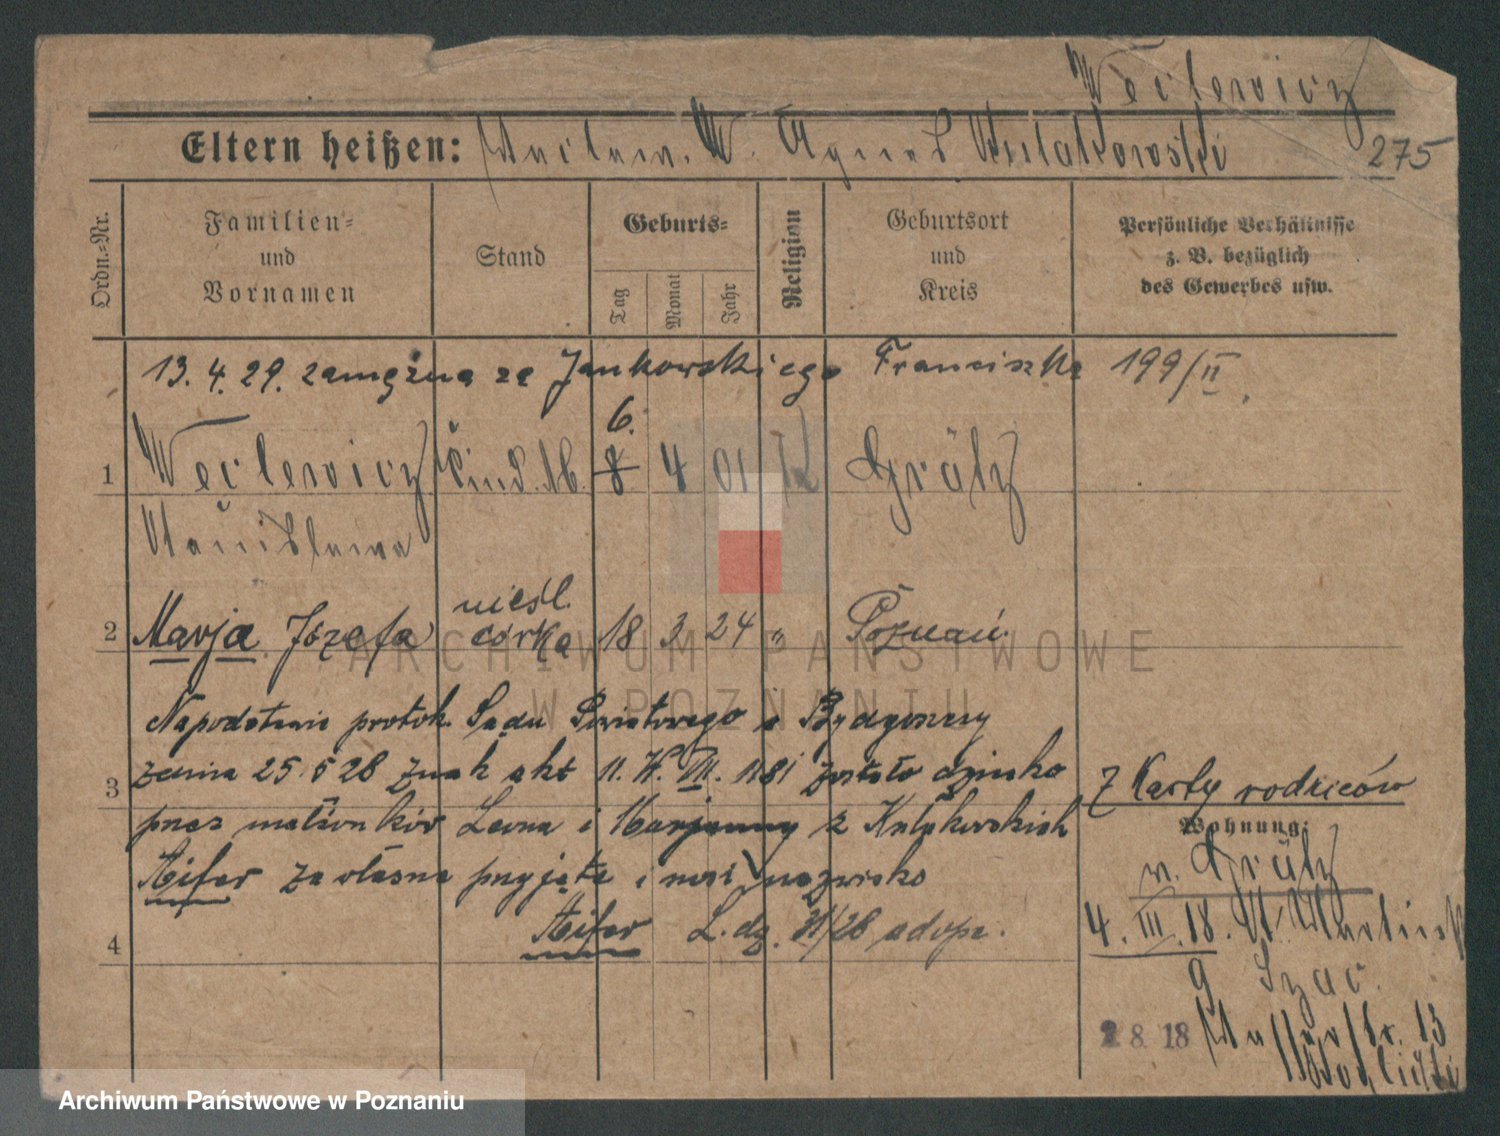 Węclewicz
Eltern heißen: Wacław. W. Agnes Kulakowski
275
Ordn.-Nr.
Familien- und Vornamen
Stand
Geburts-
Tag
Monat
Jahr
Religion
Geburtsort und Kreis
Persönliche Verhältnisse z. B. bezüglich des Gewerbes usw.
13. 4. 29. zamężna za Jankowskiego Franciszka 199/II
6.
1 Węclewicz Kind. 8 4 01 K Grätz
Stanisława
2 Marja Józefa nieśl. córka 18 3 24 " Poznań
Na podstawie protok. Sądu Powiatowego z Bydgoszczy
3 z dnia 25 5 28 znak akt 11. K. VII. 1181 zostało dziecko
przez małżonków Leona i Marjanny z Kułakowskich
Aifer za własne przyjęte i nosi nazwisko
4 Aifer L. dz. 31/28 adopt.
Z Karty rodziców
Wohnung:
n. Grätz
4. III. 18. St. Martinstr
9 Szac.
2 8. 18 13
ARCHIWUM PAŃSTWOWE
W POZNANIU
Archiwum Państwowe w Poznaniu